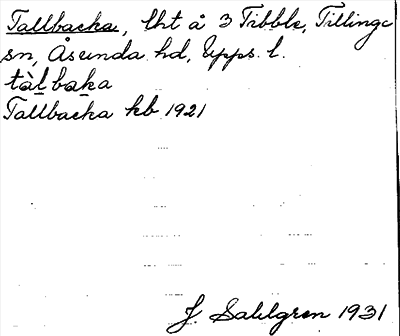 Tallbacka, lht å 3 Tibble, Tillinge
sn, Åsunda hd, Upps. l.
tàlbaka
Tallbacka kb 1921
J. Sahlgren 1931